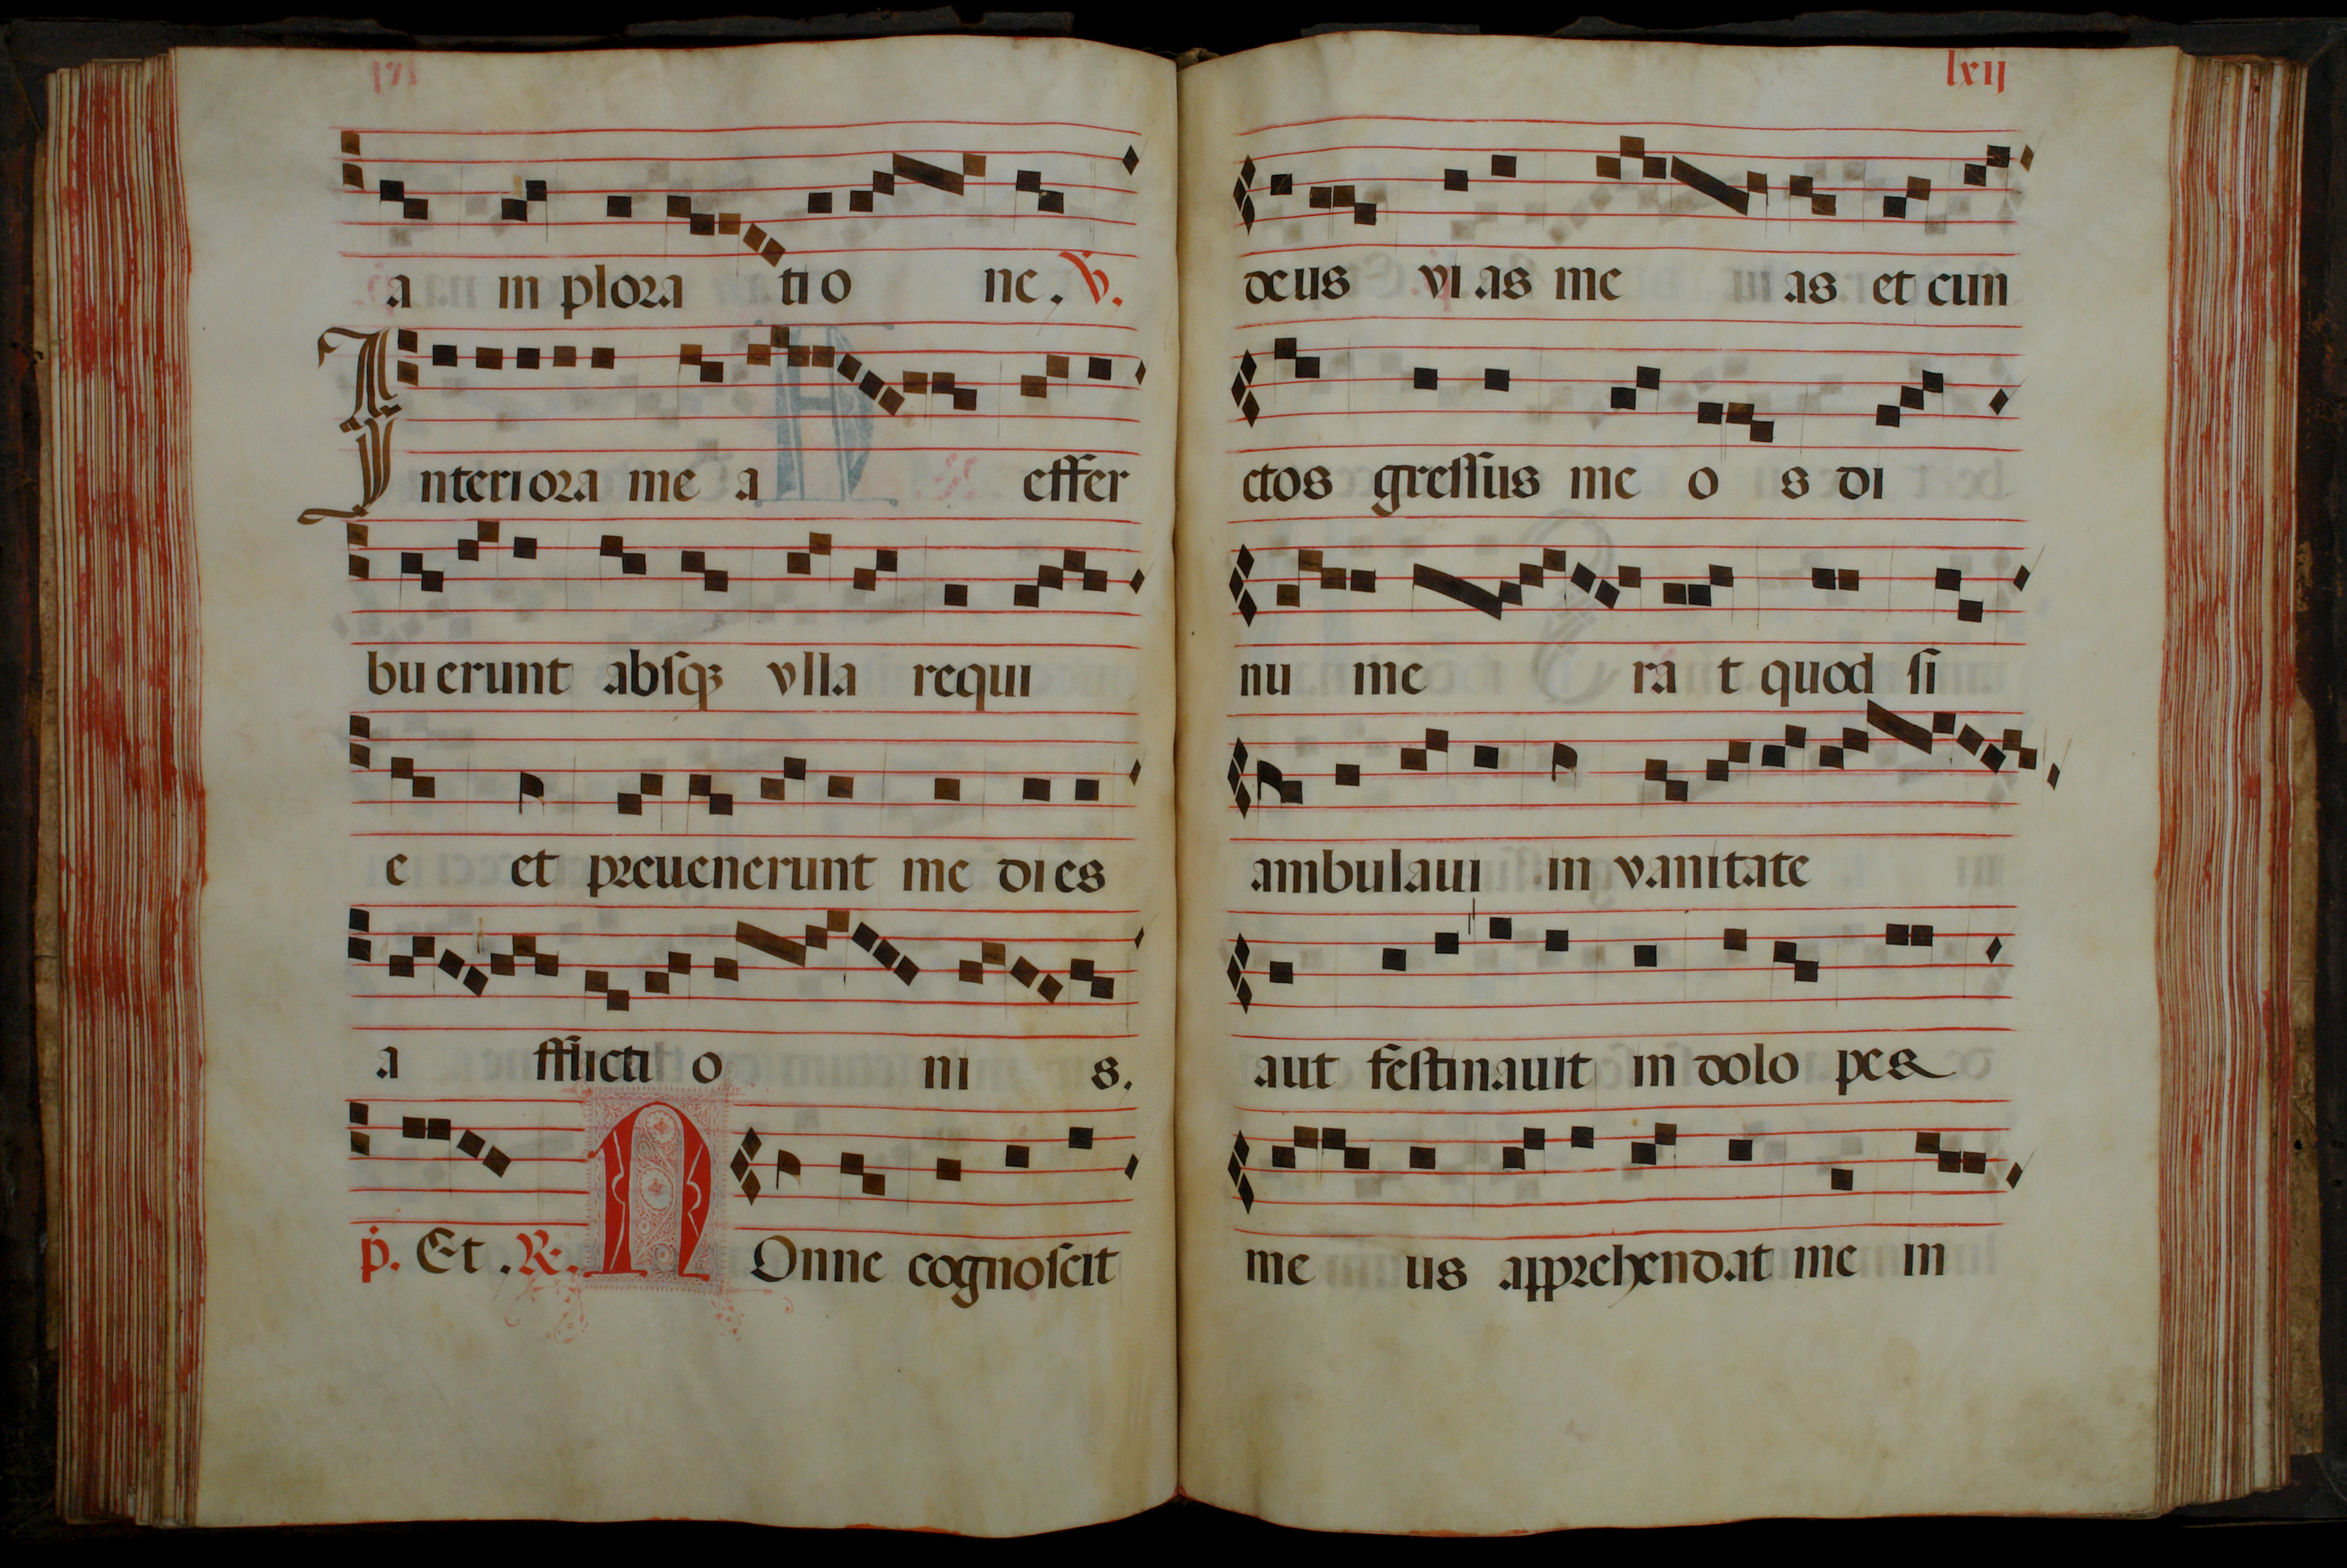 a in plora tio ne. V.
Interiora me a effer
buerunt absqꝫ vlla requi
e et preuenerunt me dies
a fflicti o ni s.
p. Et. R. NOnne cognoscit
lxij
deus vias me as et cun
ctos gressus me o s di
nu me ra t quod si
ambulaui in vanitate
aut festinauit in dolo pes
me us apprehendat me in